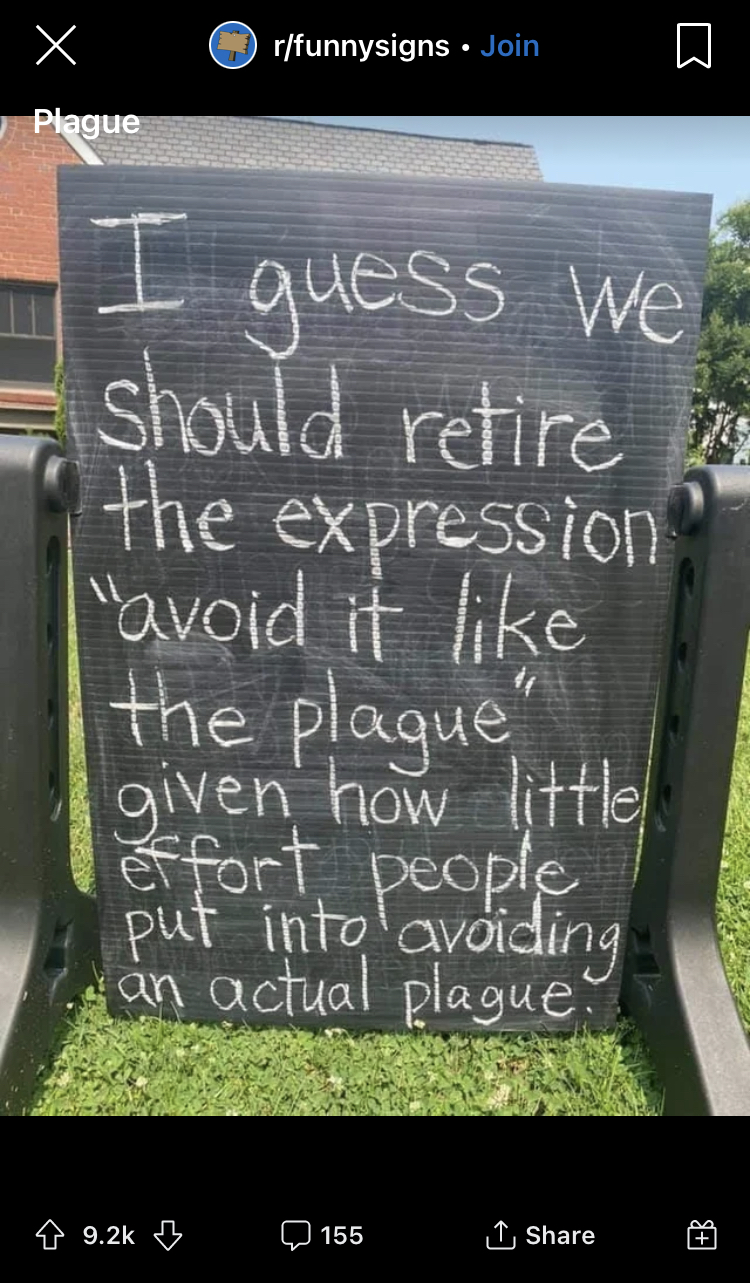 r/funnysigns • Join
Plague
I guess we
should retire
the expression
"avoid it like
the plague"
given how little
effort people
put into avoiding
an actual plague.
9.2k
155
Share